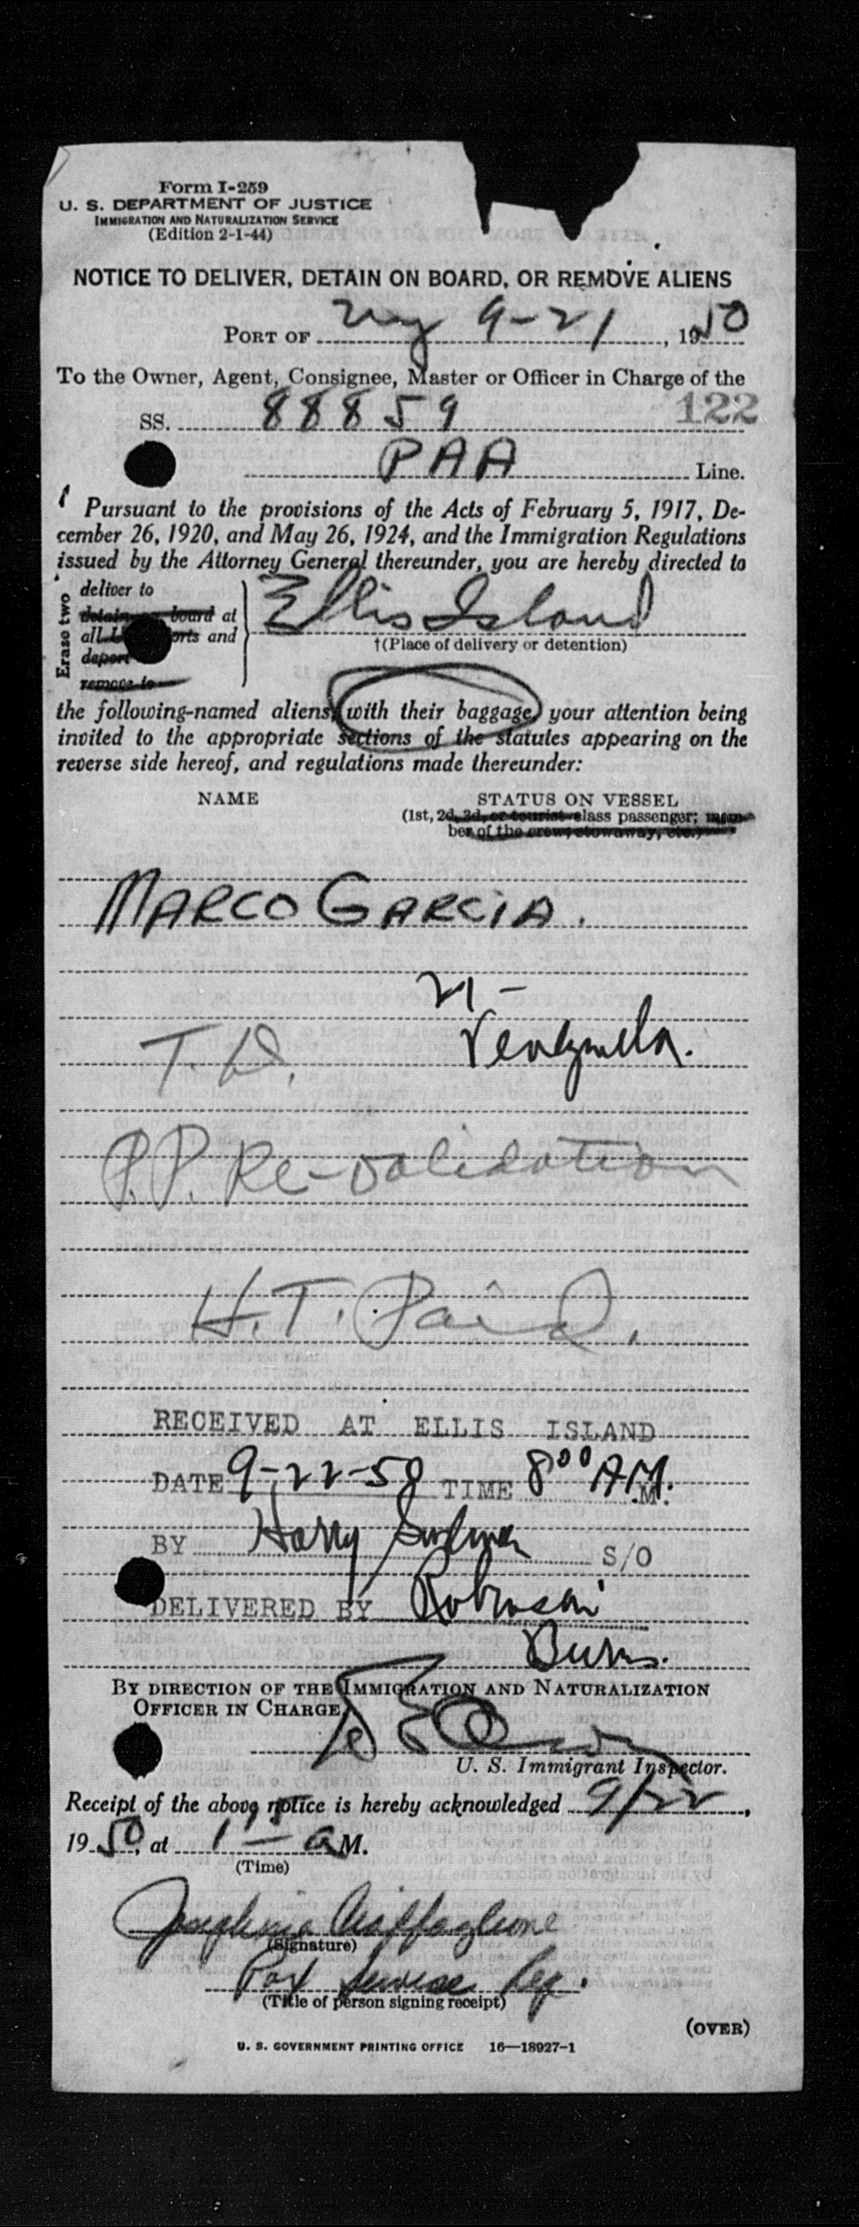 Form I-259
U. S. DEPARTMENT OF JUSTICE
IMMIGRATION AND NATURALIZATION SERVICE
(Edition 2-1-44)
NOTICE TO DELIVER, DETAIN ON BOARD, OR REMOVE ALIENS
PORT OF NY 9-21, 1950
To the Owner, Agent, Consignee, Master or Officer in Charge of the
SS. 88859 122
PAA Line.
Pursuant to the provisions of the Acts of February 5, 1917, De-
cember 26, 1920, and May 26, 1924, and the Immigration Regulations
issued by the Attorney General thereunder, you are hereby directed to
Erase two
deliver to
detain on board at
all U. S. ports and
deport
remove to
Ellis Island
†(Place of delivery or detention)
the following-named aliens, with their baggage, your attention being
invited to the appropriate sections of the statutes appearing on the
reverse side hereof, and regulations made thereunder:
NAME STATUS ON VESSEL
(1st, 2d, 3d, or tourist class passenger; mem-
ber of the crew, stowaway, etc.)
MARCO GARCIA.
21-
T.D. Venezuela.
P.P. Re-validation
H.T. Paid.
RECEIVED AT ELLIS ISLAND
DATE 9-22-50 TIME 8 00 AM. M.
BY Harry S/O
DELIVERED BY Robinson
Burns.
BY DIRECTION OF THE IMMIGRATION AND NATURALIZATION
OFFICER IN CHARGE
U. S. Immigrant Inspector.
Receipt of the above notice is hereby acknowledged 9/22,
1950, at 1 15 a M.
(Time)
(Signature)
Pax Service Rep.
(Title of person signing receipt)
(OVER)
U. S. GOVERNMENT PRINTING OFFICE 16—18927-1